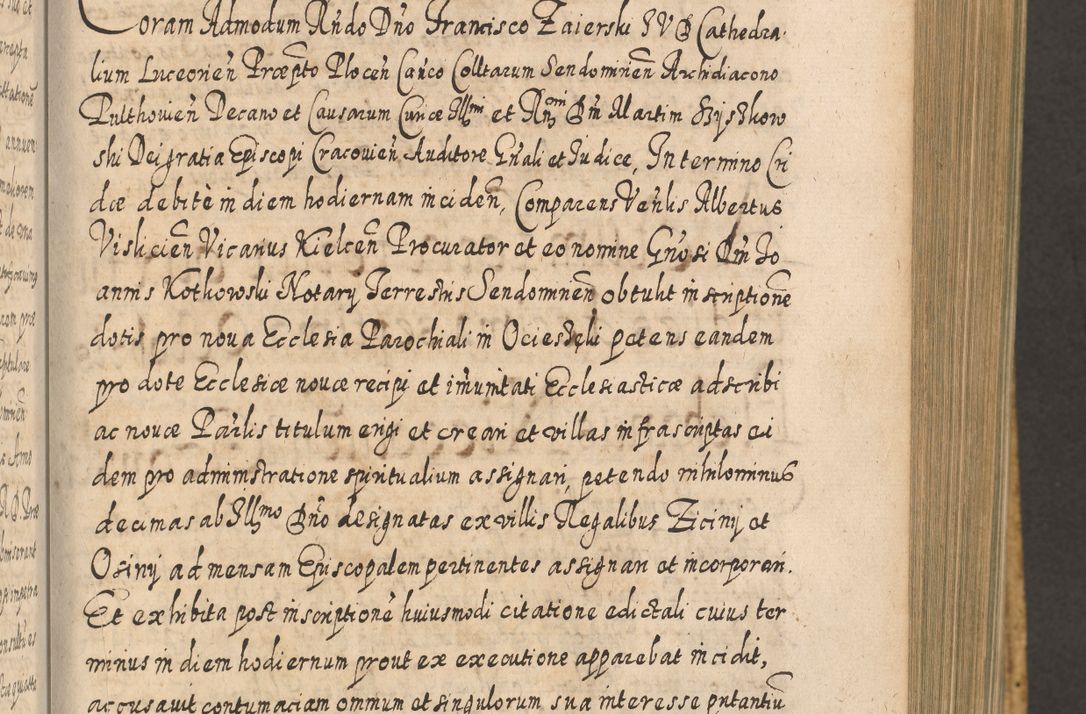 Coram Admodum Rńdo Dńo Francisco Zaierski J V D Cathedra-
lium Luceorień Præpto Plocen Canco Colltarum Sendomirień Archidiacono
Pulthovień Decano et Causarum Curiæ Illmi et Rńmi Dńi Martini Szyszkow
ski Dei gratia Episcopi Cracovień Auditore Gńali et Judice, In termino Cri
dæ debitè in diem hodiernam inciden, Comparens Venlis Albertus
Vislicień Vicarius Kielcen Procurator et eo nomine Gńosi Dńi Jo
annis Kothowski Notarij Terrestris Sendomirień obtulit inscriptionē
dotis pro nova Ecclesia Parochiali in Ociesželi petens eandem
pro dote Ecclesiæ novæ recipi et imūnitati Ecclesiasticæ adscribi
ac novæ Parlis titulum erigi et creari et villas infrascriptas ei
dem pro administratione spiritualium assignari, petendo nihilominus
decimas ab Illmo Dńo designatas ex villis Regalibus Ziciny et
Osiny ad mensam Episcopalem pertinentes assignari et incorporari.
Et exhibita post inscriptionē huiusmodi citatione edictali cuius ter
minus in diem hodiernum prout ex executione apparebat incidit,
accusavit contumaciam omnium et singulorum sua interesse putantiū